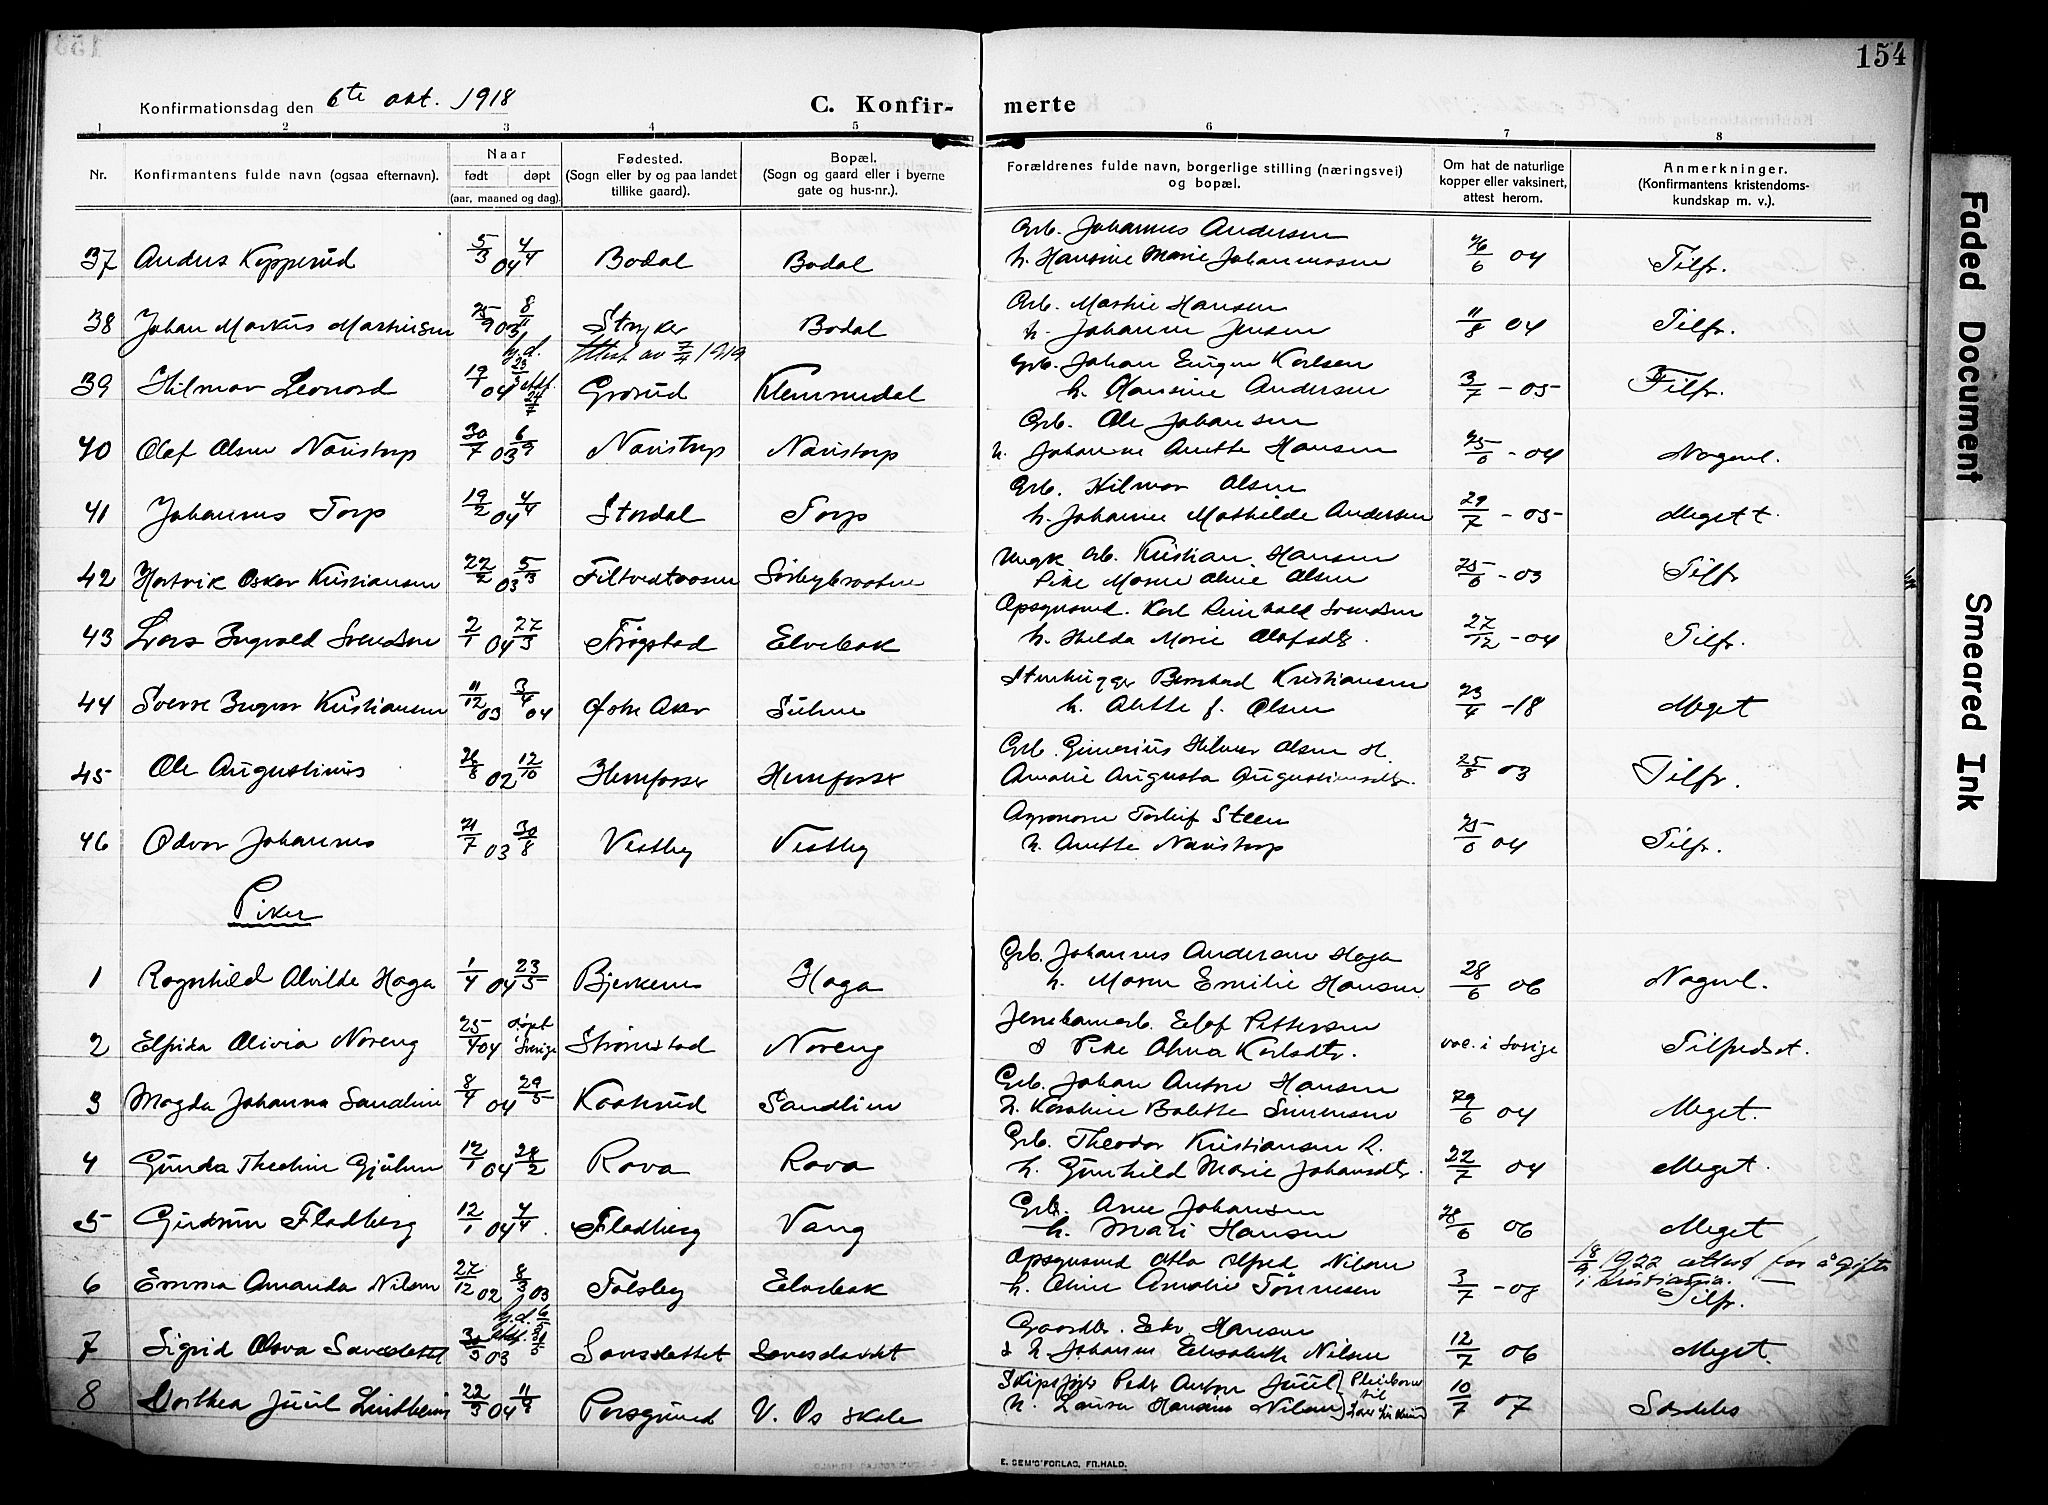 154
Konfirmationsdag den 6te okt. 1918
C. Konfir- merte
1 2 3 4 5 6 7 8
Nr.
Konfirmantens fulde navn (ogsaa efternavn).
Naar
født døpt
(aar, maaned og dag).
Fødested.
(Sogn eller by og paa landet
tillike gaard).
Bopæl.
(Sogn og gaard eller i byerne
gate og hus-nr.).
Forældrenes fulde navn, borgerlige stilling (næringsvei)
og bopæl.
Om hat de naturlige
kopper eller vaksinert,
attest herom.
Anmerkninger.
(Konfirmantens kristendoms-
kundskap m. v.).
Grb. Johannes Andersen
37 Anders Kopperud 5/3 04 4/4 Bodal Bodal h. Hansine Marie Johannessen 26/6 04 Tilfr.
Grb. Martin Hansen
38 Johan Markus Martinsen 25/9 03 8/11 Stryker Bodal h. Johanne Jensen 11/8 04 Tilfr.
Attest av 7/4 1919
Grb. Johan Eugen Karlsen
39 Hilmar Leonard 19/7 04 Grorud Klemmedal h. Hansine Andersen 3/7 - 05 Tilfr.
Grb. Ole Johansen
40 Olaf Olsen Navistorp 30/7 03 6/9 Navistorp Navistorp h. Johanne Anette Hansen 25/6 - 04 Nogenl.
Grb. Hilmar Olsen
41 Johannes Torp 19/2 04 4/4 Stordal Torp h. Johanne Mathilde Andersen 29/7 - 05 Meget t.
Ungk. Grb. Kristian Hansen
42 Hartvik Oskar Kristiansen 22/2 03 5/3 Sørbybraaten Pike Maren Oline Olsen 25/6 - 03 Tilfr
Opsynsmd. Karl Reinhold Svendsen
43 Lars Ingvald Svendsen 2/1 04 27/3 Trøgstad Elvebak h. Hilda Marie Olafsdt. 27/12 - 04 Tilfr.
Stenhugger Bernhard Kristiansen
44 Sverre Ingvar Kristiansen 11/12 03 3/4 04 Østre Aker h. Alette J. Olsen 23/4 - 18 Meget
Grb. Gunerius Hilmer Olsen H.
45 Ole Augustinus 26/8 02 12/10 Hemfosser Hemfosser Amalie Augusta Augustinusdtr. 25/8 03 Tilfr.
Agronom Torleif Steen
46 Odvar Johannes 21/7 03 30/8 Vestby Vestby h. Anette Navistorp 25/6 04 Tilfr.
Piker
Grb. Johannes Andersen Haga
1 Ragnhild Alvilde Haga 1/4 04 23/5 Bjerkenes Haga h. Maren Emilie Hansen 28/6 06 Nogenl.
Jernbanearb. Elof Pettersen
2 Elfrida Olivia Noreng 25/4 04 døpt i Sverige Strømstad Noreng & Pike Alma Karlsdtr. vac. i Sverige Tilfredset.
Grb. Johan Anton Hansen
3 Magda Johanna Sandlien 8/4 04 29/5 Kaatrud Sandlien h. Karoline Bolette Simensen 29/6 04 Meget.
Grb. Theodor Kristiansen R.
4 Gunda Theoline Gjulem 12/1 04 28/2 Rova Rova h. Gunhild Marie Johansdtr. 22/7 04 Meget.
Grb. Arne Johansen
5 Gudrun Fladberg 12/1 04 4/4 Fladberg Vang h. Mari Hansen 28/6 06 Meget
Opsynsmd Otto Alfred Nilsen 18/9 1922 attest for å gifte
i Kristiania.
6 Emma Amanda Nilsen 27/12 02 8/3 03 Folsby Elvebak h. Oline Amalie Tønnesen 3/7 - 08 Tilfr.
Gaardbr. Edv. Hansen
7 Sigrid Asva Savesdettet 03 Savesdettet & h. Johanne Elisabeth Nilsen 12/7 06 Meget.
Skipsfører Peder Anton Juul Pleiebarn
til
8 Dorthea Juul Lindheim 22/3 04 Porsgrund V. Os skole h. Laura Hansine Nilsen 10/7 07 Særdeles
E. SEM'S FORLAG, FR.HALD.
Faded Document
Smeared Ink